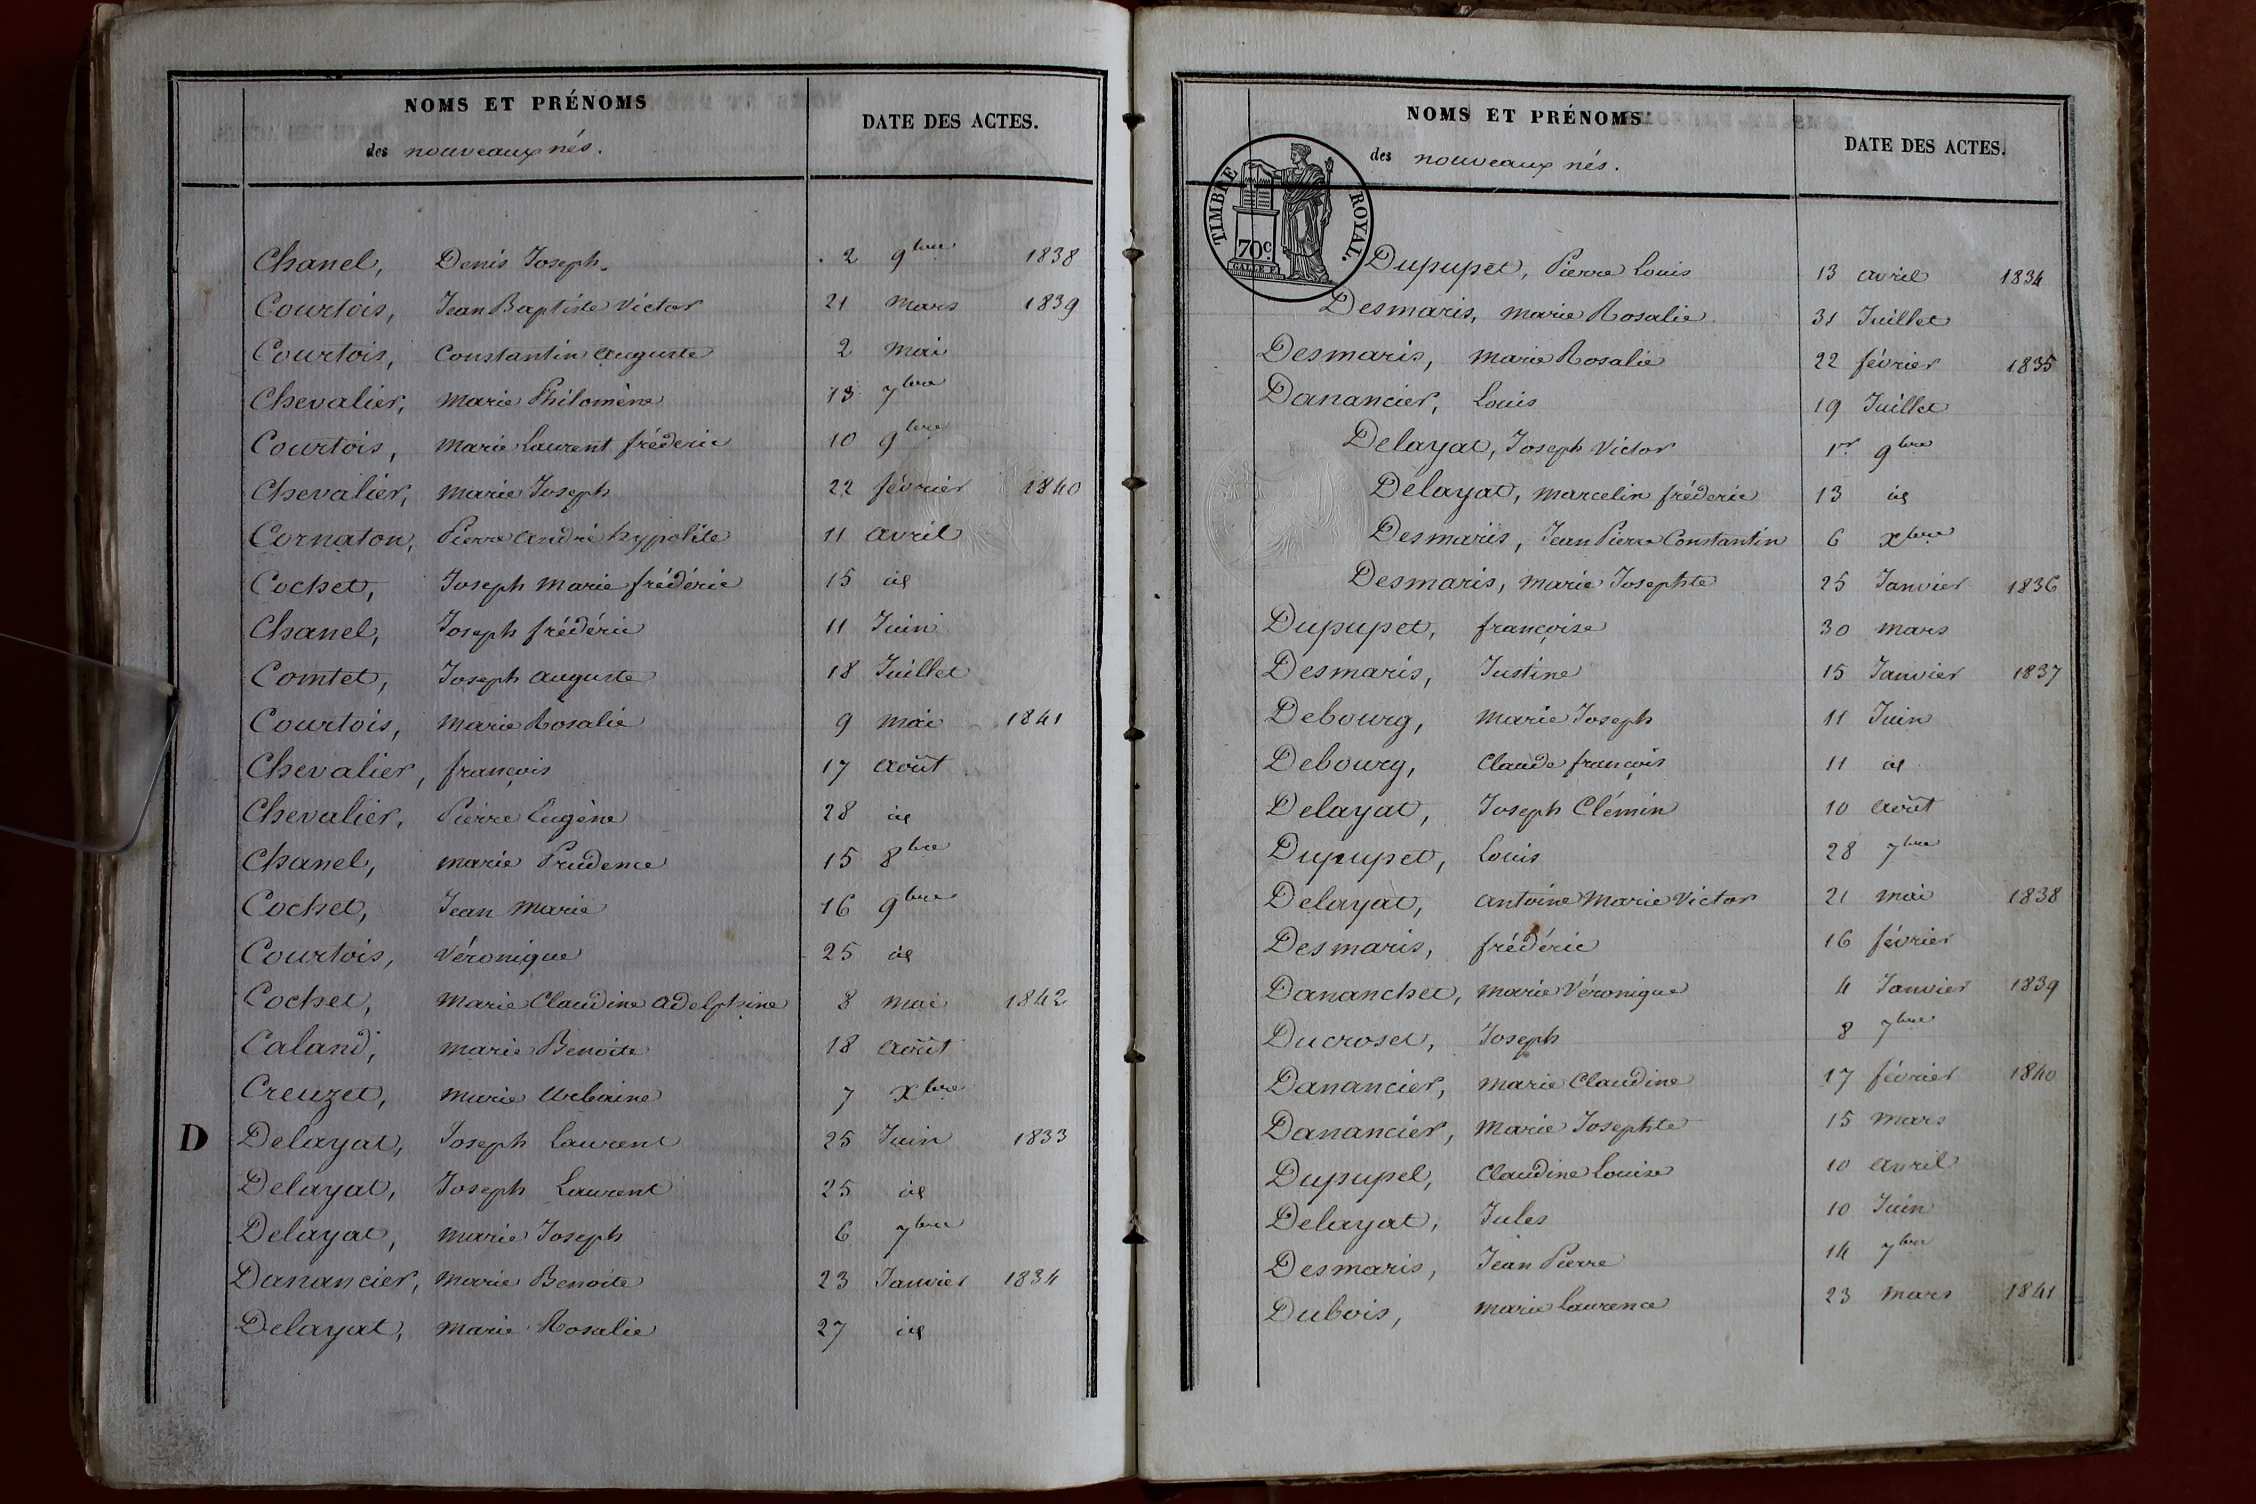 NOMS ET PRÉNOMS
des nouveaux nés.
DATE DES ACTES.
Chanel, Denis Joseph. 2 9bre 1838
Courtois, Jean Baptiste Victor 21 mars 1839
Courtois, Constantin auguste 2 mai
Chevalier, marie Philomène 13 7bre
Courtois, marie Laurent fréderic 10 9bre
Chevalier, marie Joseph 22 février 1840
Cornaton, Pierre andré hypolite 11 avril
Cochet, Joseph marie frédéric 15 id
Chanel, Joseph frédéric 11 Juin
Comtet, Joseph auguste 18 Juillet
Courtois, marie Rosalie 9 mai 1841
Chevalier, françois 17 août
Chevalier, Pierre Eugène 28 id
Chanel, marie Prudence 15 8bre
Cochet, Jean marie 16 9bre
Courtois, véronique 25 id
Cochet, marie Claudine adelphine 8 mai 1842
Caland, marie Benoite 18 août
Creuzet, marie Urbaine 7 Xbre
D Delayat, Joseph Laurent 25 Juin 1833
Delayat, Joseph Laurent 25 id
Delayat, marie Joseph 6 7bre
Danancier, marie Benoite 23 Janvier 1834
Delayat, marie Rosalie 27 id
NOMS ET PRÉNOMS
des nouveaux nés.
DATE DES ACTES.
TIMBRE ROYAL.
70c
Dupupet, Pierre Louis 13 avril 1834
Desmaris, marie Rosalie 31 Juillet
Desmaris, marie Rosalie 22 février 1835
Danancier, Louis 19 Juillet
Delayat, Joseph Victor 1er 9bre
Delayat, marcelin fréderic 13 id
Desmaris, Jean Pierre Constantin 6 Xbre
Desmaris, marie Josephte 25 Janvier 1836
Dupupet, françoise 30 mars
Desmaris, Justine 15 Janvier 1837
Debourg, marie Joseph 11 Juin
Debourg, Claude françois 11 id
Delayat, Joseph Clémin 10 août
Dupupet, Louis 28 7bre
Delayat, antoine Marie Victor 21 mai 1838
Desmaris, frédéric 16 février
Dananchet, marie Véronique 4 Janvier 1839
Ducroset, Joseph 8 7bre
Danancier, marie Claudine 17 février 1840
Danancier, marie Josephte 15 mars
Dupupet, Claudine Louise 10 avril
Delayat, Jules 10 Juin
Desmaris, Jean Pierre 14 7bre
Dubois, marie Laurence 23 mars 1841